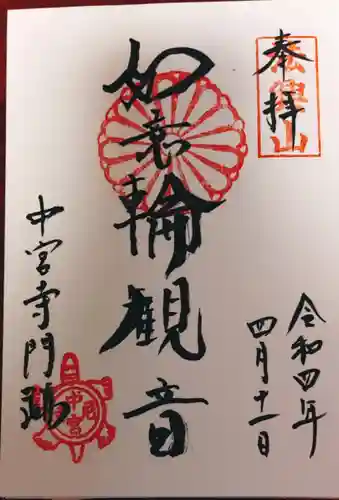 奉拝
法興山
如意輪観音
中宮寺門跡
中宮
令和四年
四月十一日